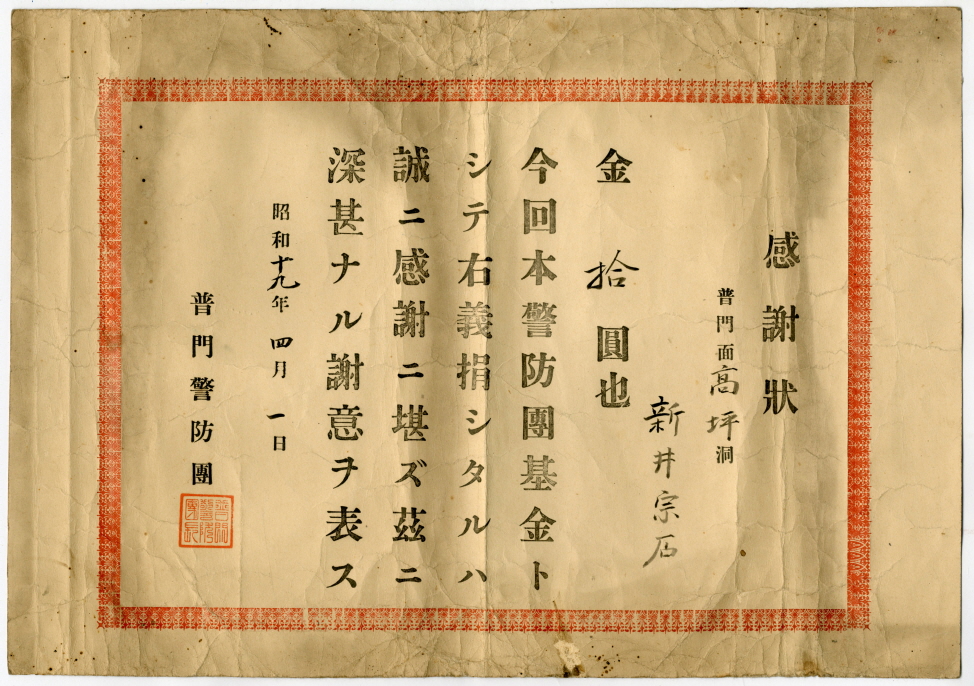 感謝狀
普門面高坪洞
新井宗石
金拾圓也
今回本警防團基金ト
シテ右義捐シタルハ
誠ニ感謝ニ堪ズ茲ニ
深甚ナル謝意ヲ表ス
昭和十九年四月一日
普門警防團